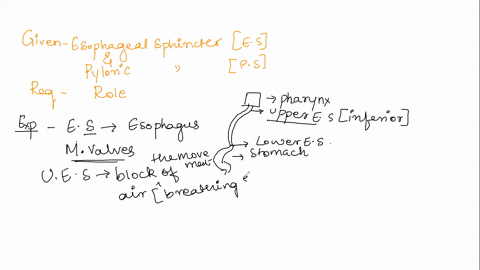 Given - Esophageal Sphincter [E.S]
&
Pyloric " [P.S]
Req - Role
Exp - E.S → Esophagus
M. Valves
→ pharynx
→ Upper E S [inferior]
→ Lower E.S.
→ Stomach
U.E.S → block of the movement
air [breatering